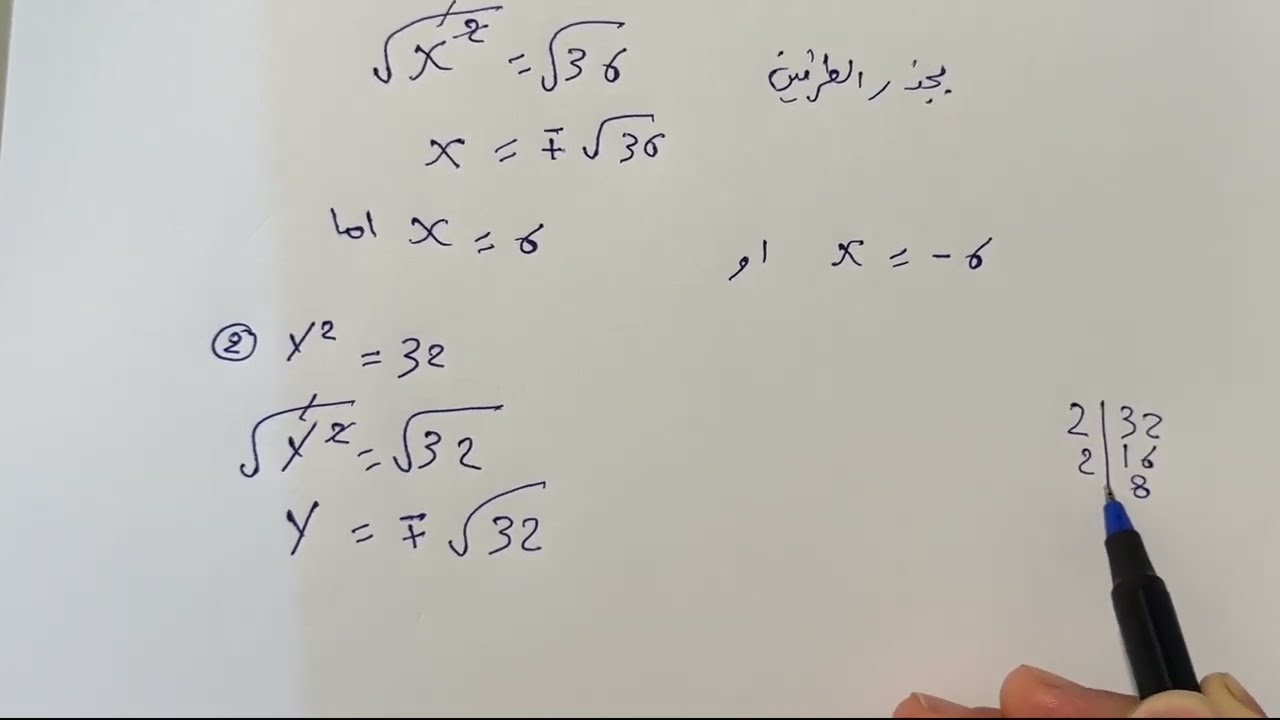 √x² = √36 بجذر الطرفين
x = ∓ √36
اما x = 6 او x = -6
② y² = 32
√y² = √32
y = ∓ √32
2 | 32
2 | 16
| 8